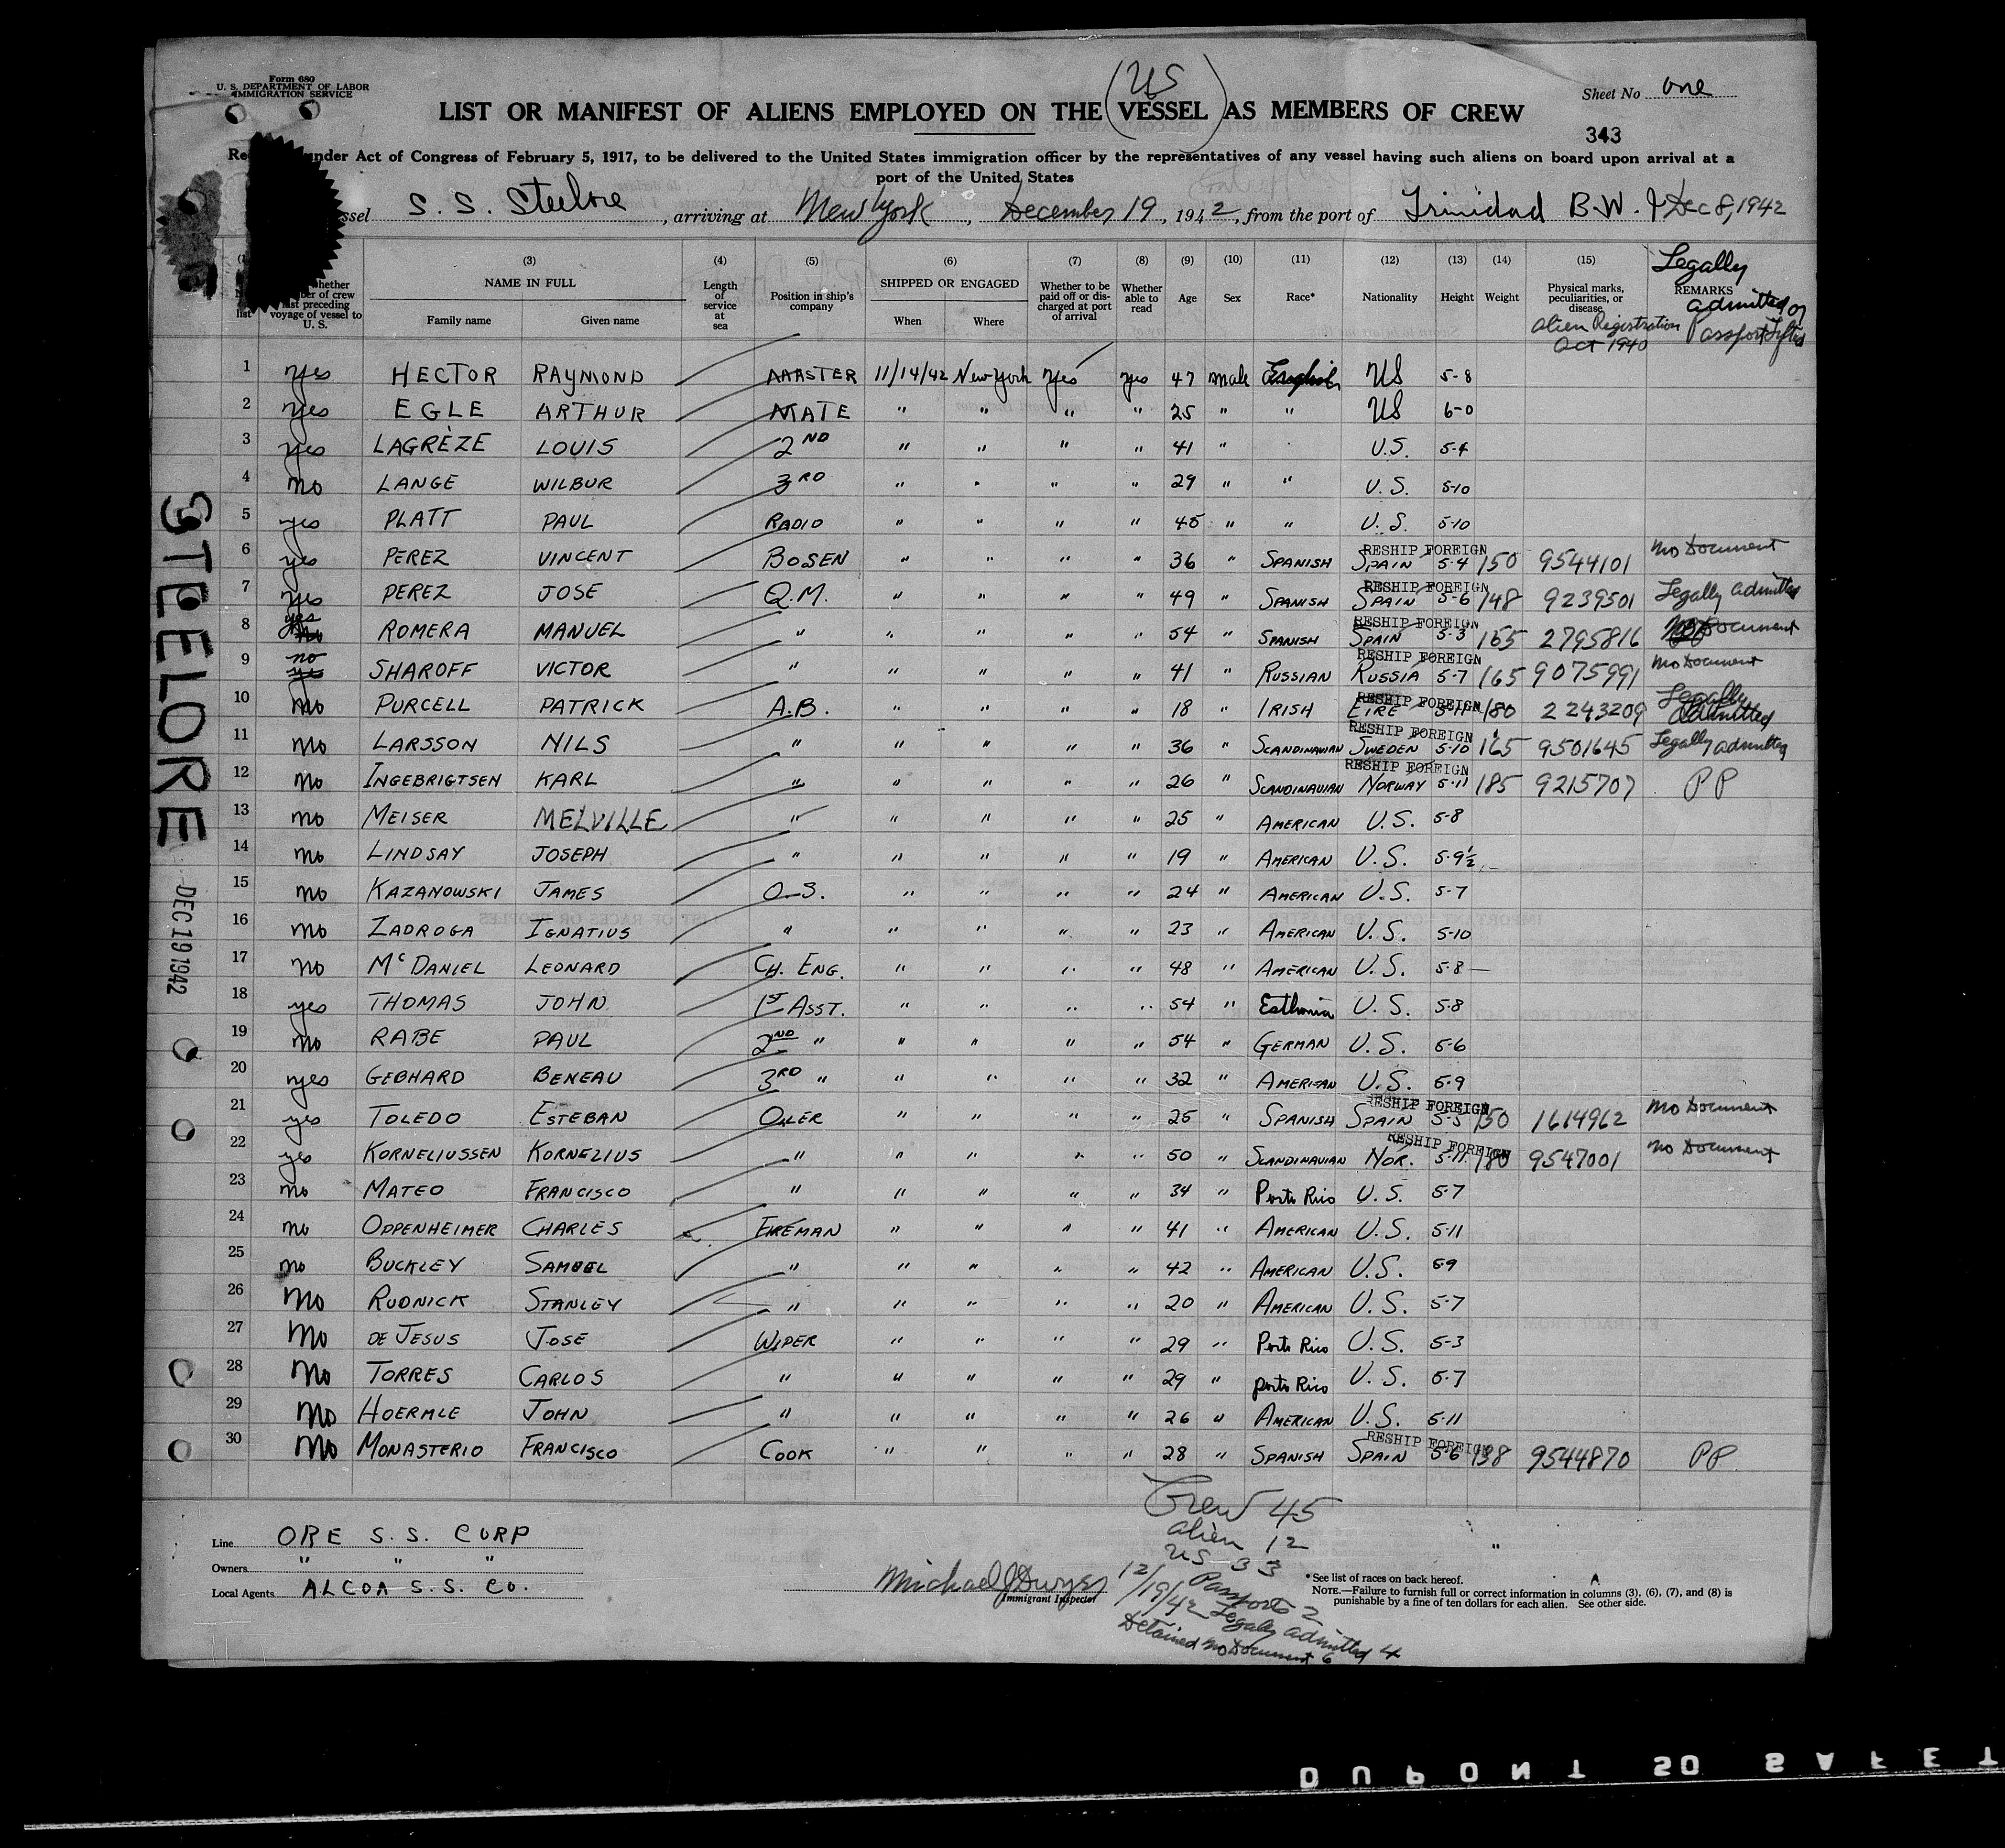 Form 680
U. S. DEPARTMENT OF LABOR
IMMIGRATION SERVICE
Sheet No one
(US)
LIST OR MANIFEST OF ALIENS EMPLOYED ON THE VESSEL AS MEMBERS OF CREW
343
under Act of Congress of February 5, 1917, to be delivered to the United States immigration officer by the representatives of any vessel having such aliens on board upon arrival at a
port of the United States
ssel S. S. Steelore, arriving at New York, December 19, 1942, from the port of Trinidad B.W.I Dec 8, 1942
(3) (4) (5) (6) (7) (8) (9) (10) (11) (12) (13) (14) (15) Legally
list whether ber of crew st preceding voyage of vessel to U. S. NAME IN FULL Family name Given name Length of service at sea Position in ship's company SHIPPED OR ENGAGED When Where Whether to be paid off or discharged at port of arrival Whether able to read Age Sex Race* Nationality Height Weight Physical marks, peculiarities, or disease REMARKS
Alien Registration Oct 1940 admitted or Passport
1 yes HECTOR RAYMOND MASTER 11/14/42 New York Yes yes 47 male English US 5-8
2 yes EGLE ARTHUR MATE " " " " 25 " " US 6-0
3 yes LAGRÈZE LOUIS 2ND " " " " 41 " " U.S. 5-4
4 no LANGE WILBUR 3RD " " " " 29 " " U.S. 5-10
5 yes PLATT PAUL RADIO " " " " 45 " " U.S. 5-10
6 yes PEREZ VINCENT BOSEN " " " " 36 " SPANISH SPAIN RESHIP FOREIGN 5-4 150 9544101 no Document
7 yes PEREZ JOSE Q.M. " " " " 49 " SPANISH SPAIN RESHIP FOREIGN 5-6 148 9239501 Legally admitted
8 yes no ROMERA MANUEL " " " " " 54 " SPANISH SPAIN RESHIP FOREIGN 5-3 155 2795816 No Document
9 no yes SHAROFF VICTOR " " " " " 41 " RUSSIAN RUSSIA RESHIP FOREIGN 5-7 165 9075991 no Document
10 no PURCELL PATRICK A.B. " " " " 18 " IRISH EIRE RESHIP FOREIGN 5-11 180 2243209 Legally admitted
11 no LARSSON NILS " " " " " 36 " SCANDINAVIAN SWEDEN RESHIP FOREIGN 5-10 165 9501645 Legally admitted
12 no INGEBRIGTSEN KARL " " " " " 26 " SCANDINAVIAN NORWAY RESHIP FOREIGN 5-11 185 9215707 PP
13 no MEISER MELVILLE " " " " " 25 " AMERICAN U.S. 5-8
14 no LINDSAY JOSEPH " " " " " 19 " AMERICAN U.S. 5-9½
15 no KAZANOWSKI JAMES O.S. " " " " 24 " AMERICAN U.S. 5-7
16 no ZADROGA IGNATIUS " " " " " 23 " AMERICAN U.S. 5-10
17 no McDANIEL LEONARD CH. ENG. " " " " 48 " AMERICAN U.S. 5-8
18 yes THOMAS JOHN 1ST ASST. " " " " 54 " Esthonia U.S. 5-8
19 no RABE PAUL 2ND " " " " " 54 " GERMAN U.S. 5-6
20 yes GEBHARD BENEAU 3RD " " " " " 32 " AMERICAN U.S. 5-9
21 yes TOLEDO ESTEBAN OILER " " " " 25 " SPANISH SPAIN RESHIP FOREIGN 5-5 150 1614962 no Document
22 yes KORNELIUSSEN KORNELIUS " " " " " 50 " SCANDINAVIAN NOR. RESHIP FOREIGN 5-11 180 9547001 no Document
23 no MATEO FRANCISCO " " " " " 34 " Porto Rico U.S. 5-7
24 no OPPENHEIMER CHARLES FIREMAN " " " " 41 " AMERICAN U.S. 5-11
25 no BUCKLEY SAMUEL " " " " " 42 " AMERICAN U.S. 5-9
26 no RUDNICK STANLEY " " " " " 20 " AMERICAN U.S. 5-7
27 no DE JESUS JOSE WIPER " " " " 29 " Porto Rico U.S. 5-3
28 no TORRES CARLOS " " " " " 29 " porto Rico U.S. 5-7
29 no HOERMLE JOHN " " " " " 26 " AMERICAN U.S. 5-11
30 no MONASTERIO FRANCISCO COOK " " " " 28 " SPANISH SPAIN RESHIP FOREIGN 5-6 138 9544870 PP
STEELORE
DEC 19 1942
Crew 45
alien 12
US 33
Passports 2
Legally admitted 4
Detained no Document 6
Line ORE S. S. CORP
Owners " " "
Local Agents ALCOA S. S. CO.
Michael J Dwyer 12/19/42
Immigrant Inspector
*See list of races on back hereof.
NOTE.—Failure to furnish full or correct information in columns (3), (6), (7), and (8) is
punishable by a fine of ten dollars for each alien. See other side.
DUPONT SO SAFET